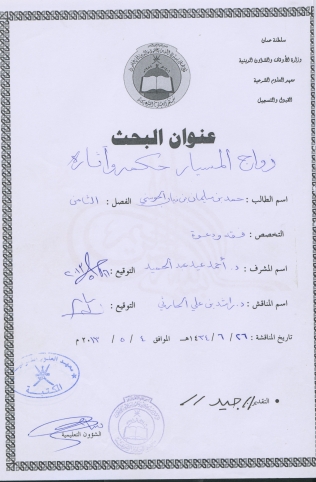 سلطنة عمان
وزارة الأوقاف والشؤون الدينية
معهد العلوم الشرعية
القبول والتسجيل
عنوان البحث
زواج المسيار حكمه وآثاره
اسم الطالب : حمد بن سليمان بن الفصل : الثامن
التخصص : فقه ودعوة
اسم المشرف : د. أحمد عيد عبد الحميد التوقيع :
اسم المناقش : د. راشد بن علي الحارثي التوقيع :
تاريخ المناقشة : ٢٦ / ٦ / ١٤٣٤هـ الموافق ٤ / ٥ / ٢٠١٣ م
التقدير // جيد //
الشؤون التعليمية